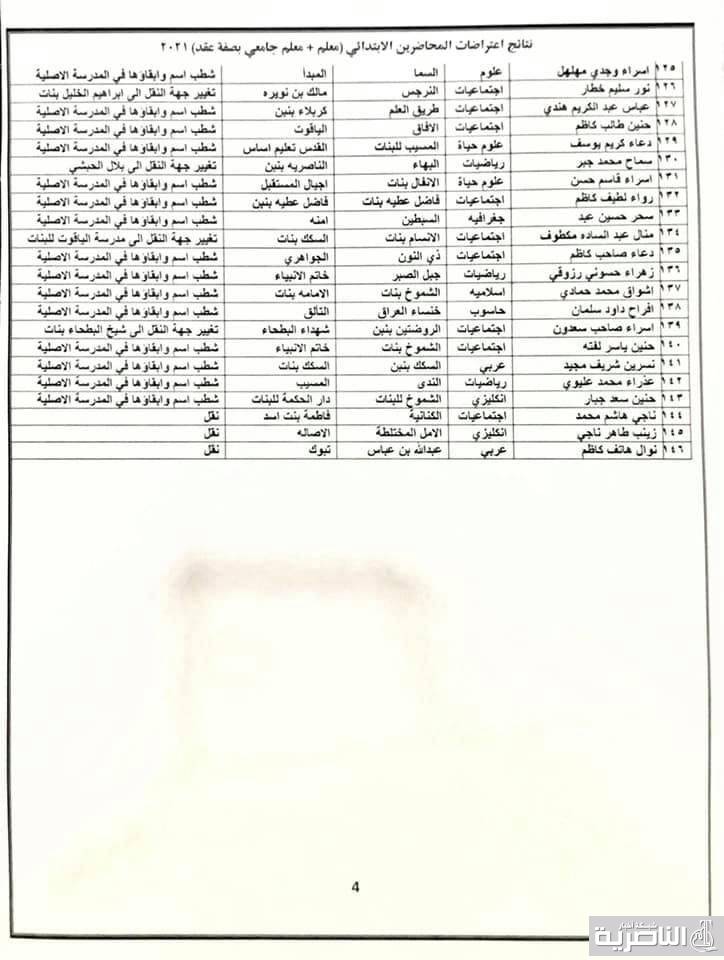 نتائج اعتراضات المحاضرين الابتدائي (معلم + معلم جامعي بصفة عقد) ٢٠٢١
١٢٥ اسراء وجدي مهلهل علوم السما المبدأ شطب اسم وابقاؤها في المدرسة الاصلية
١٢٦ نور سليم خطار اجتماعيات النرجس مالك بن نويره تغيير جهة النقل الى ابراهيم الخليل بنات
١٢٧ عباس عبد الكريم هندي اجتماعيات طريق العلم كربلاء بنين شطب اسم وابقاؤها في المدرسة الاصلية
١٢٨ حنين طالب كاظم اجتماعيات الافاق الياقوت شطب اسم وابقاؤها في المدرسة الاصلية
١٢٩ دعاء كريم يوسف علوم حياة المسيب للبنات القدس تعليم اساس شطب اسم وابقاؤها في المدرسة الاصلية
١٣٠ سماح محمد جبر رياضيات البهاء الناصريه بنين تغيير جهة النقل الى بلال الحبشي
١٣١ اسراء قاسم حسن علوم حياة الانفال بنات اجيال المستقبل شطب اسم وابقاؤها في المدرسة الاصلية
١٣٢ رواء لطيف كاظم اجتماعيات فاضل عطيه بنات فاضل عطيه بنين شطب اسم وابقاؤها في المدرسة الاصلية
١٣٣ سحر حسين عبد جغرافيه السبطين امنه شطب اسم وابقاؤها في المدرسة الاصلية
١٣٤ منال عبد الساده مكطوف اجتماعيات الانسام بنات السكك بنات تغيير جهة النقل الى مدرسة الياقوت للبنات
١٣٥ دعاء صاحب كاظم اجتماعيات ذي النون الجواهري شطب اسم وابقاؤها في المدرسة الاصلية
١٣٦ زهراء حسوني رزوقي رياضيات جبل الصبر خاتم الانبياء شطب اسم وابقاؤها في المدرسة الاصلية
١٣٧ اشواق محمد حمادي اسلاميه الشموخ بنات الامامه بنات شطب اسم وابقاؤها في المدرسة الاصلية
١٣٨ افراح داود سلمان حاسوب خنساء العراق التألق شطب اسم وابقاؤها في المدرسة الاصلية
١٣٩ اسراء صاحب سعدون اجتماعيات الروضتين بنين شهداء البطحاء تغيير جهة النقل الى شيخ البطحاء بنات
١٤٠ حنين ياسر لفته اجتماعيات الشموخ بنات خاتم الانبياء شطب اسم وابقاؤها في المدرسة الاصلية
١٤١ نسرين شريف مجيد عربي السكك بنين السكك بنات شطب اسم وابقاؤها في المدرسة الاصلية
١٤٢ عذراء محمد عليوي رياضيات الندى المسيب شطب اسم وابقاؤها في المدرسة الاصلية
١٤٣ حنين سعد جبار انكليزي الشموخ للبنات دار الحكمة للبنات شطب اسم وابقاؤها في المدرسة الاصلية
١٤٤ ناجي هاشم محمد اجتماعيات الكنانية فاطمة بنت اسد نقل
١٤٥ زينب طاهر ناجي انكليزي الامل المختلطة الاصاله نقل
١٤٦ نوال هاتف كاظم عربي عبدالله بن عباس تبوك نقل
4
الناصرية